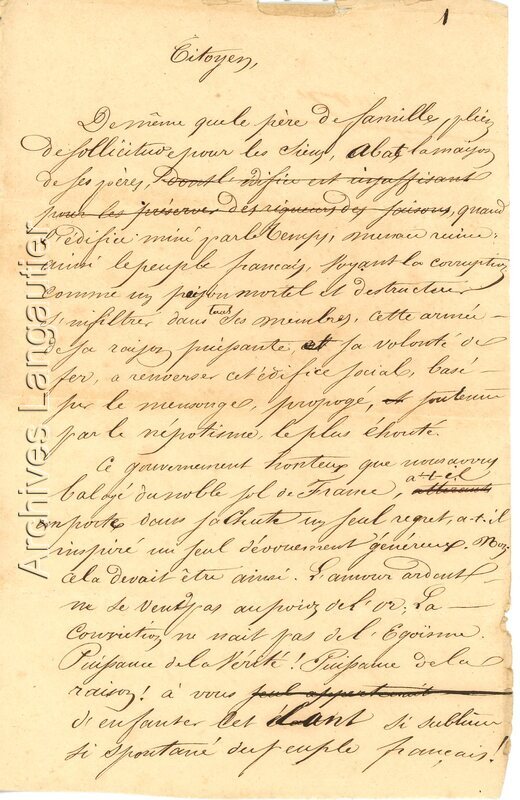 1
Citoyen,
De même que le père de famille, plein
de sollicitude pour les siens, abat la maison
de ses pères, dont l'édifice est insuffisant
pour les préserver des rigueurs des saisons, quand
l'édifice miné par le temps, menace ruine;
ainsi le peuple français, voyant la corruption
comme un poison mortel et destructeur
s'infiltrer dans tous ses membres, cette armée
de sa raison puissante et sa volonté de
fer, a renverser cet édifice social, basé
par le mensonge, propogé, et soutenu
par le népotisme, le plus éhonté.
Ce gouvernement honteux que nous avons
balayé du noble sol de France, a-t-il
emporté dans sa chute un seul regret, a-t-il
inspiré un seul dévouement généreux. Non
cela devait être ainsi. L'amour ardent
ne se vend pas au poids de l'or; La
conviction ne nait pas de l'Egoïsme.
Puissance de la Vérité! Puissance de la
raison! à vous seul appartenait
d'enfanter cet élant si sublime
si spontané du peuple français!
Archives Langautier